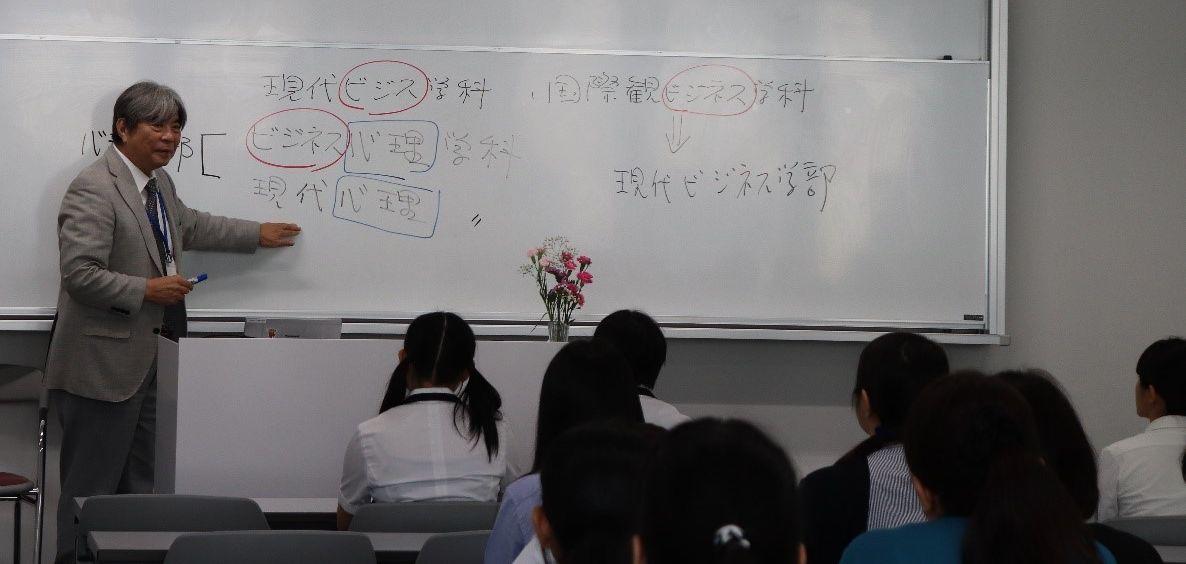 現代ビジス学科
国際観ビジネス学科
ビジネス心理学科
現代心理 〃
現代ビジネス学部